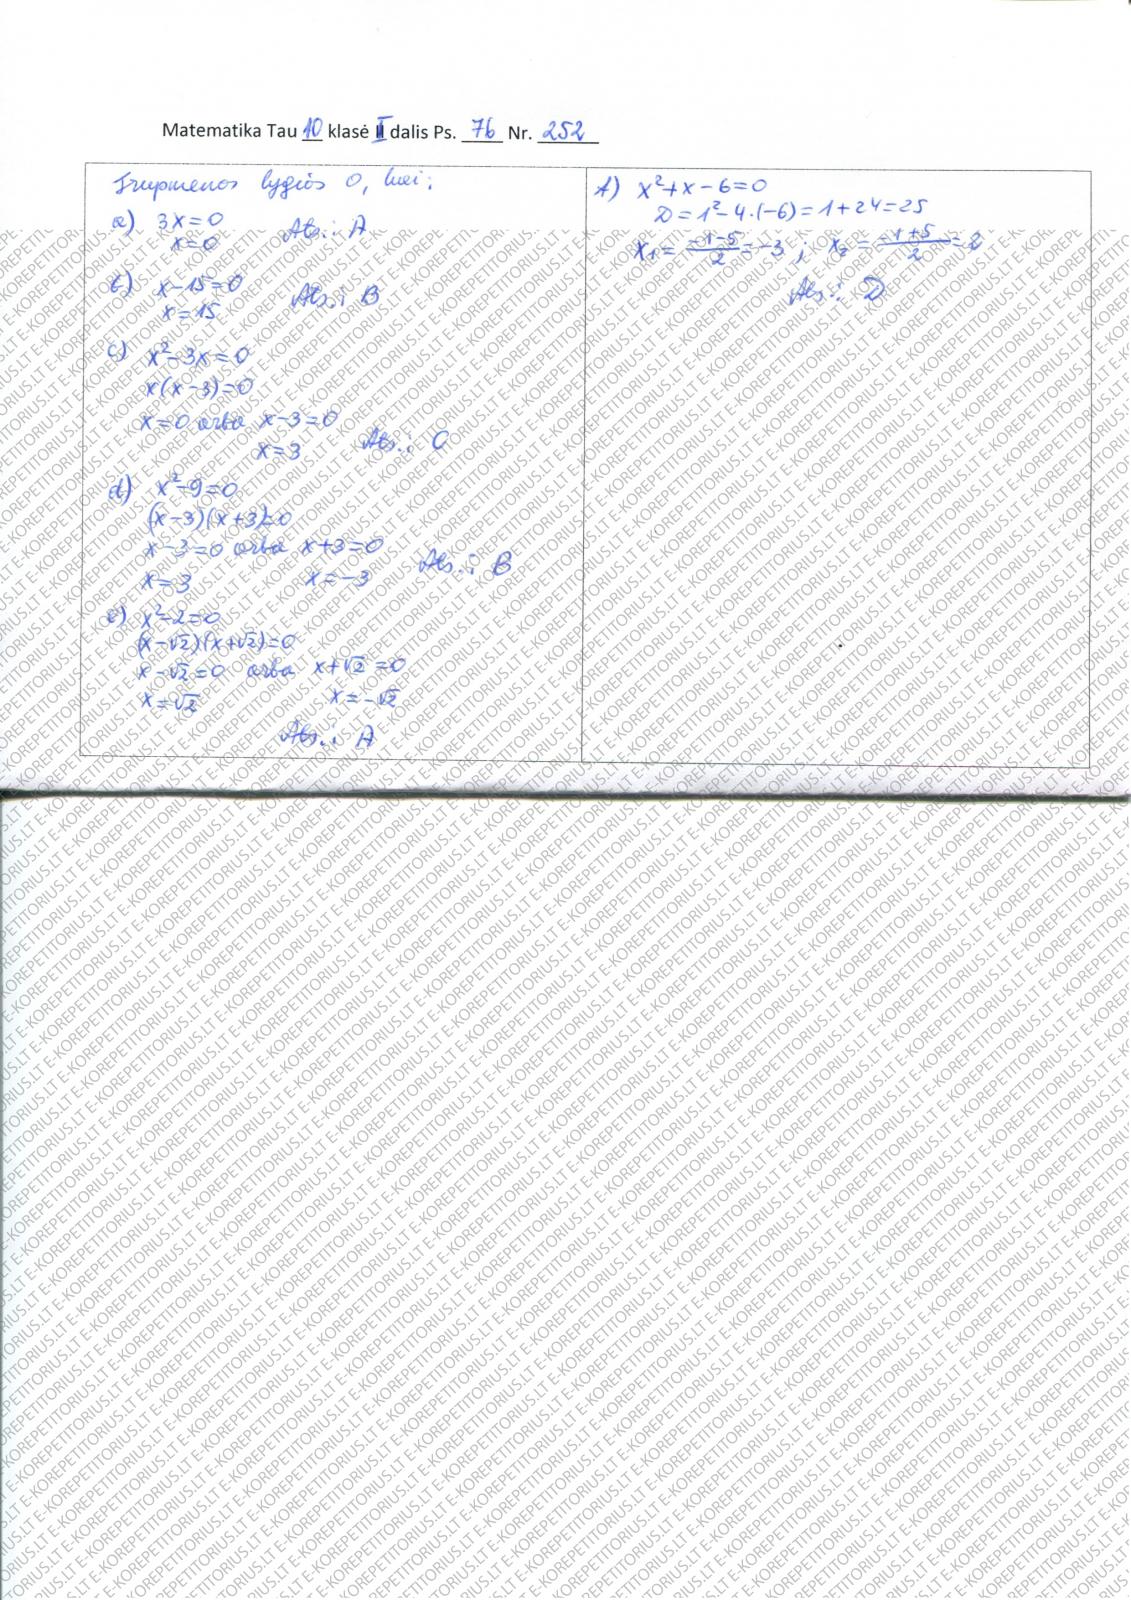 Matematika Tau 10 klasė I dalis Ps. 76 Nr. 252
Trupmenos lygios 0, kai:
a) 3x=0
x=0 Ats.: A
b) x-15=0
x=15 Ats.: B
c) x²-3x=0
x(x-3)=0
x=0 arba x-3=0
x=3 Ats.: C
d) x²-9=0
(x-3)(x+3)=0
x-3=0 arba x+3=0
x=3 x=-3 Ats.: B
e) x²-2=0
(x-√2)(x+√2)=0
x-√2=0 arba x+√2=0
x=√2 x=-√2
Ats.: A
f) x²+x-6=0
D=1²-4·(-6)=1+24=25
x₁=(-1-5)/2=-3; x₂=(-1+5)/2=2
Ats.: D
E-KOREPETITORIUS.LT